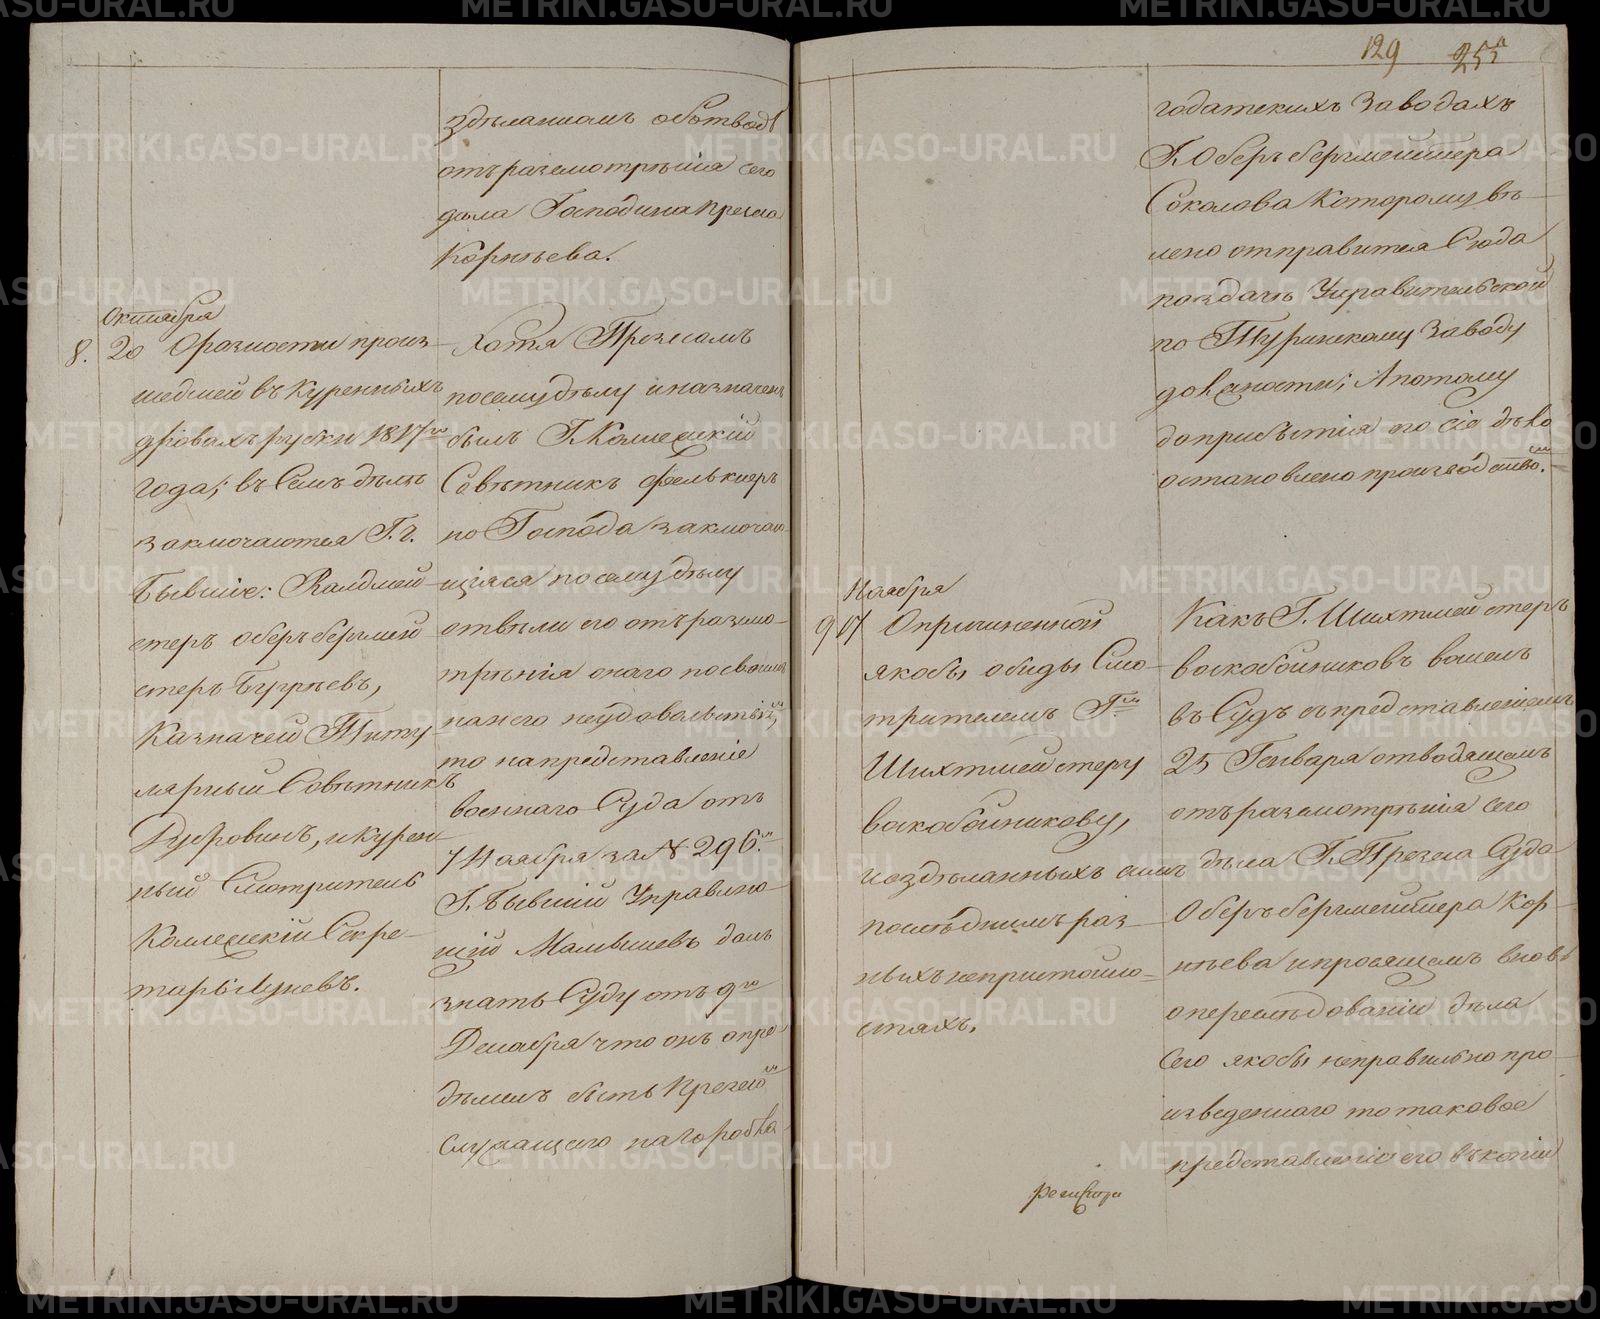 зделанномъ объотводѣ
отъ разсмотрѣнія сего
дѣла Господина Презеса
Корнѣева.
Октября
8. 20 О разности произ-
шедшей въ куренныхъ
дровахъ рубки 1817го
года; въ Семъ дѣлѣ
заключаются Г.г.
Бывшіе:
стеръ оберъ бергмей
стеръ Бугрѣевъ,
Казначей Титу
лярный Совѣтникъ
Дубровинъ, и курен
ный Смотритель
Коллежскій Секре-
тарь Лунёвъ.
Хотя Презесомъ
посему дѣлу и назначенъ
былъ Г. Коллежскій
Совѣтникъ Фелькнеръ
но Господа заключаю-
щіяся по сему дѣлу
отвѣли его отъ разсмо-
трѣнія онаго по
на него неудовольствію,
то на представленіе
военнаго Суда отъ
7 Ноября за № 296.м
Г. Бывшій Управляю-
щій Мамышевъ далъ
знать Суду отъ 9го
Декабря что онъ опре
дѣлилъ быть Презесомъ
Служащего на Гороблаго
129 255
годатскихъ Заводахъ
Г. Оберъ бергмейстера
Соколова Которому вѣ-
лено отправится Сюда
по здачѣ Управительской
по Туринскому Заводу
должности; А потому
до прибытія его сіе дѣло
остановлено производствомъ.
Ноября
9 17 О причиненной
якобы обиды Смо-
трителемъ Г.мъ
Шихтмейстеру
воскобойникову,
и о зделанныхъ симъ
последнимъ раз-
ныхъ непристойно-
стяхъ.
Какъ Г. Шихтмейстеръ
воскобойниковъ вошелъ
въ Судъ съ представленіемъ
25 Генваря отводящемъ
отъ разсмотрѣнія сего
дѣла Г. Презеса Суда
Оберъ бергмейстера Кор-
нѣева и просящемъ вновь
о переслѣдованіи дѣла
Сего якобы неправильно про-
изведеннаго то таковое
представленіе его въ копіи